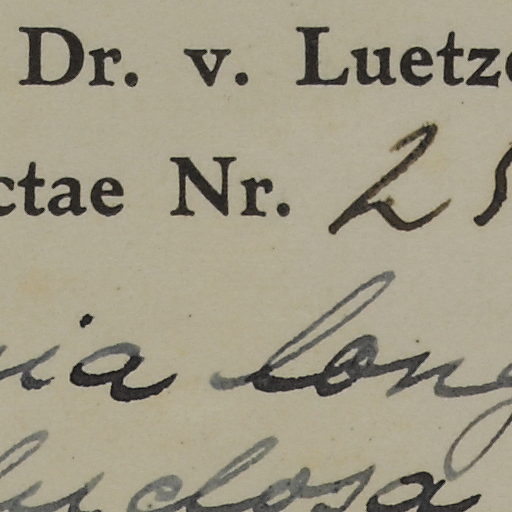 Dr. v. Luetze
ctae Nr. 25
nia long
closa